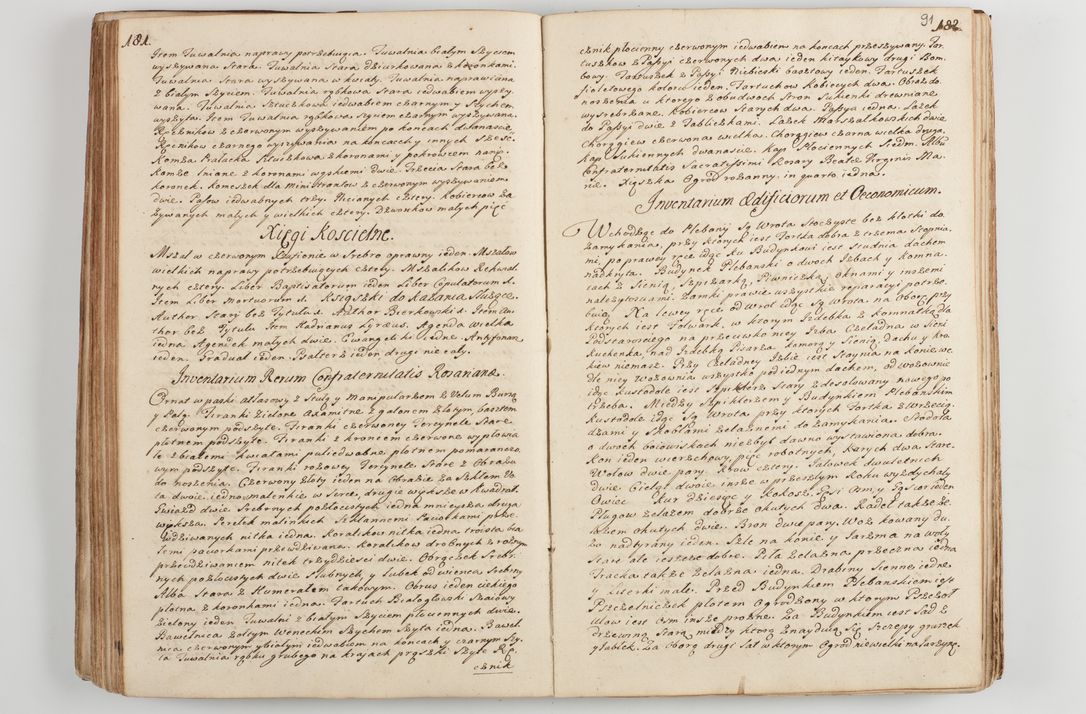 181.
Item Tuwalnia naprawy potrzebuiąca. Tuwalnia białym Szyciem
wyszywana Stara. Tuwalnia Stara dziurkowana z koronkami.
Tuwalnia Stara wyszywana w kwiaty. Tuwalnia naprawiana
z białym Szyciem. Tuwalnia rąbkowa Stara iedwabiem wyszy
wana. Tuwalnia Sztuczkowa iedwabiem czarnym y Szychem
wyszyta. Item Tuwalnia rąbkowa Szyciem czarnym wyszywana.
Ręczników z czerwonym wyszywaniem po koncach dwanascie
Ręcznikow czarnego wyszywania na koncach y innych Szesc.
Komza Stuczkowa z koronami y pokrowcem na nię.
Komze lniane z koronami wąskiemi dwie. Trzecia Stara bez
koronek. Komeszek dla Ministrantow z czerwonym wyszywaniem
dwie. Pasow iedwabnych trzy. Nicianych cztery. Kobiercow za
zywanych małych y wielkich cztery. Dzwonkow małych pięć
Xięgi Koscielne.
Mszał w czerwonym w Srebro oprawny ieden. Mszałow
wielkich naprawy potrzebuiących cztery. Mszalikow Rekwial
nych cztery. Liber Baptisatorum ieden Liber Copulatorum 1.
Item Liber Mortuorum 1. Ksiąszki do kazania Służące.
Author Stary bez Tytułu 1. Author Bierkowski 1. Item Au
thor bez Tytułu Item Hadrianus Lyræus. Agenda wielka
iedna Agendek małych dwie. Ewangeliczki iedne Antyfonarz
ieden. Graduał ieden Psałterz ieden drugi nie cały.
Inventarium Rerum Confraternitatis Rosarianæ.
Ornat w paski atłasowy z Stułą y Manipularzem z Velum Bursą
y Palą. Firanki Zielone Axamitne z galonem złotym, basztem
czerwonym podszyte. Firanki czerwoney Tercynele Stare
płotnem podszyte. Firanki z kroncem czerwone wypłowia
łe z białemi kwiatami puliedwabne płotnem pomaranczo
wym podszyte. Firanki rożowey Tercynele Stare z Obrazu
do noszenia. Czerwony złoty ieden na Obrazie za Szkłem Vo
ta dwoie, iedno malenkie w Serce, drugie większe w kwadrat.
Gwiazd dwie Srebrnych pozłocistych iedna mnieysza druga
większa. Perełek malinkich Szklannemi Paciorkami prze
widziwanych nitka iedna. Koralikow nitka iedna troista bia
łemi paciorkami przewdziwana. Koralikow drobnych z rożnym
przewdziwaniem nitek trzydziesci dwie. Obrączek Srebr
nych pozłocistych dwie Slubnych, y Szubek od wienca Srebrny
Alba Stara z Humerałem takowym. Obrus ieden cienkiego
płotna z koronkami iedna. Fartuch Białogłowski Szacowy
zielony ieden Tuwalni z białym Szyciem płociennych dwie.
Bawełnica żołtym Wenechim Szychem Szyta iedna. Baweł
nica czerwonym y białym iedwabiem na koncach y czarnym Szy
ta Tuwalnia rąbku grubego na kraiach prążki Szyte Rę
cznik
91
182.
cznik płocienny czerwonym iedwabiem na koncach przeszywany. Far
tuszkow z Passyi czerwonych dwa ieden kitaykowy drugi Bom
bowy. Fartuszek z Passyi Niebieski basztowy ieden. Fartuszek
fioletowego koloru ieden. Fartuchow Kobiecych dwa. Obraz do
noszenia u ktorego z obudwoch Stron Sukienki drewniane
wysrebrzane. Kobiercow Starych dwa. Passya iedna. Lasek
do Passyi dwie z Tabliczkami. Lasek Marszałkowskich dwie
Chorągiew czerwona wielka. Chorągiew czarna wielka druga.
Kap Sukiennych dwanascie. Kap Płociennych Siedm. Album
Confraternitatis Sacratissimi Rosary Beatæ Virginis Ma
riæ. Xiąszka Ogrod rożanny, in quarto iedna.
Inventarium Ædificiorum et Oeconomicum.
Wchodząc do Plebanij Są Wrota Stoczyste bez kłotki do
zamykania, przy ktorych iest Fortka dobra z trzema Stopnia
mi, po prawey ręce idąc ku Budynkowi iest Studnia dachem
nadkryta. Budynek Plebanski o dwoch Izbach y komna
tach z Sienią, Szpiżarką, Piwniczką, oknami y inszemi
należytosciami. Zamki prawie wszystkie reparacyi potrze
buią. Na lewey ręce od Wrot idąc Są Wrota na Oborę przy
ktorych iest Folwark, w ktorym Izdebka z komnatką dla
Podstarosciego na przeciwko niey Izba Czeladna w Sieni
Kuchenka, nad Izdebką Pisarza komorą y Sienią, Dachu y kro
kiew niemasz. Przy Czeladney Izbie iest Staynia na konie we
dle niey Wozownia wszystko pod iednym dachem, od Wozownie
idąc Kustodole iest Szpiklerz Stary zdesolowany nowego po
trzeba. Między Szpiklerzem y Budynkiem Plebanskim
Kustodole idąc Są Wrota przy ktorych Fortka z Wrzecią
dzami y Skoblami żelaznemi do zamykania. Stodoła
o dwoch boiowiskach niezbyt dawno wystawiona dobra.
Kon ieden wierzchowy, pięc robotnych, karych dwa Stare.
Wołow dwie pary. Krow cztery. Jałowek dwuletnich
dwie. Cieląt dwoie, insze w przeszłym Roku wyzdychały.
Owiec Kur dziesięc y kokosz. Gęsi Osm y Gęsior ieden
Pługow żelazem dobrze okutych dwa. Radeł także że
lazem okutych dwie. Bron dwa pary. Woz kowany du
żo nadtyrany ieden. Szle na konie y Jarzma na woły
Stare ale ieszcze dobre. Piła żelazna przeczna iedna
Tracka także żelazna iedna. Drabiny Sienne iedne
y Literki małe. Przed Budynkiem Plebanskiem iest
Pszczelniczek płotem Ogrodzony w ktorym Pszczoł
Ulow iest Osm insze prożne. Za Budynkiem iest Sad z
drzewiną Starą między ktorą znayduią Się Szczepy gruszek
y iabłek. Za Oborą drugi Sad w ktorym Ogrod niewielki na Jarzynę.